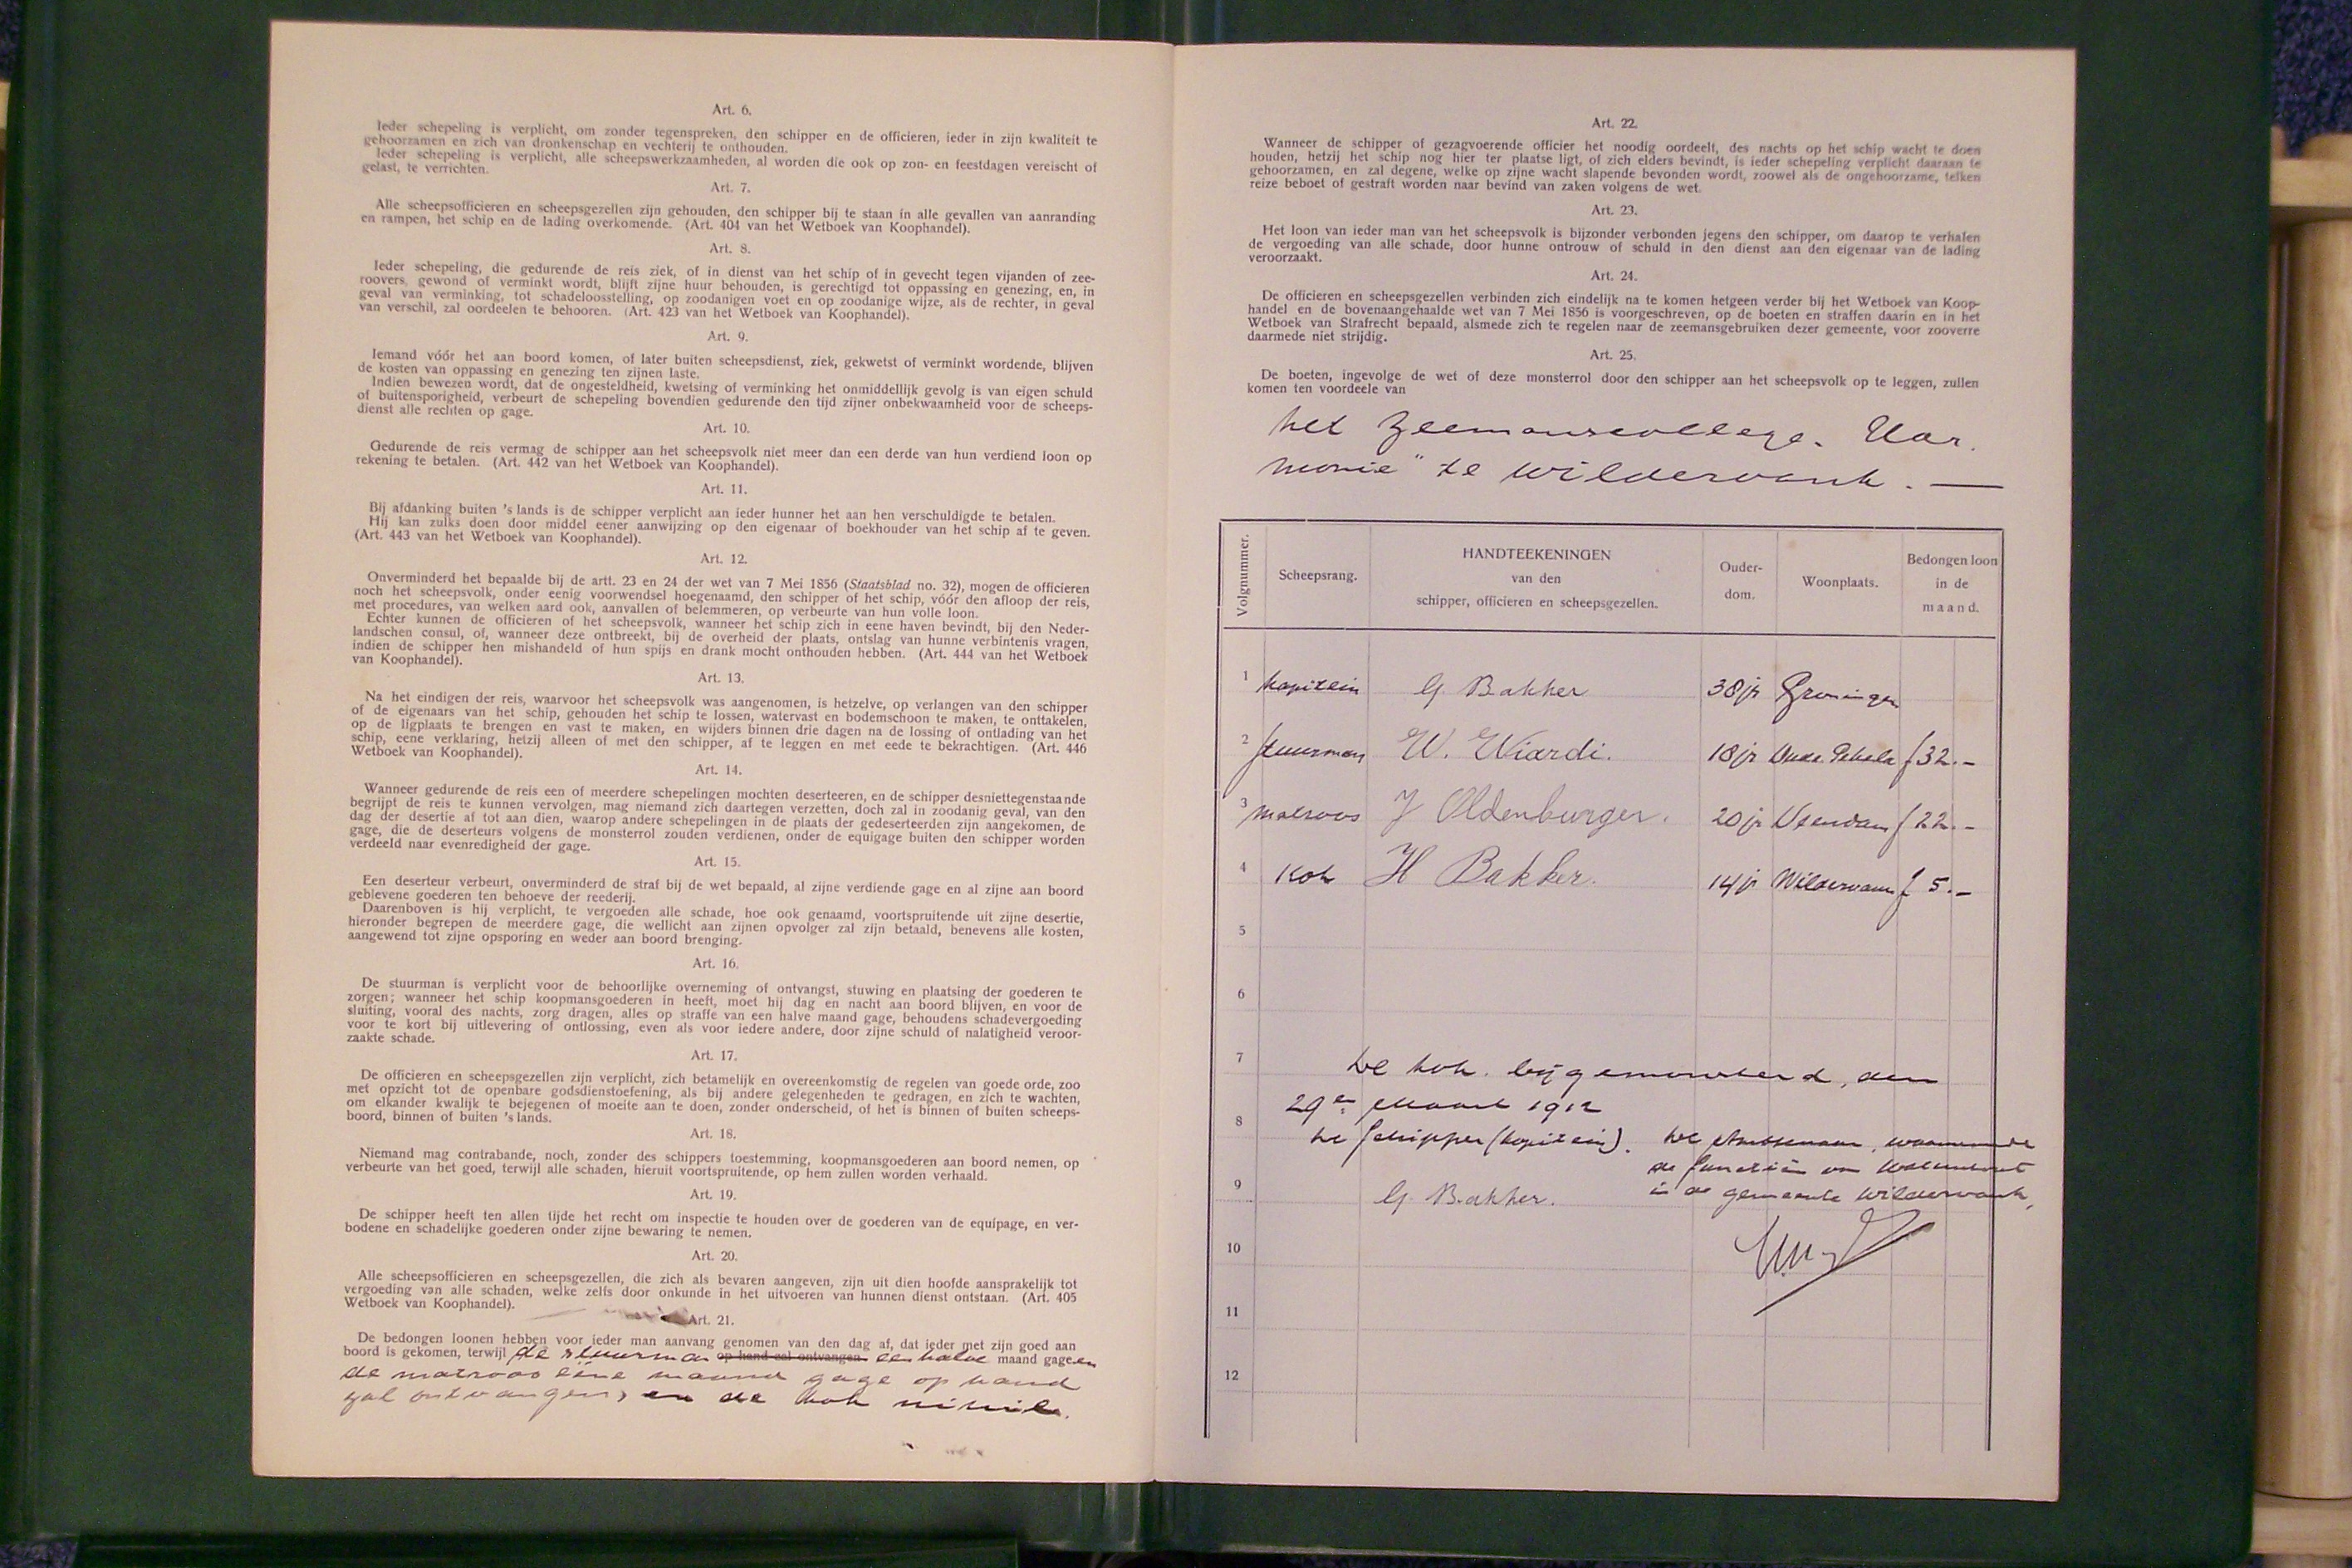 Art. 6.
Ieder schepeling is verplicht, om zonder tegenspreken, den schipper en de officieren, ieder in zijn kwaliteit te
gehoorzamen en zich van dronkenschap en vechterij te onthouden.
Ieder schepeling is verplicht, alle scheepswerkzaamheden, al worden die ook op zon- en feestdagen vereischt of
gelast, te verrichten.
Art. 7.
Alle scheepsofficieren en scheepsgezellen zijn gehouden, den schipper bij te staan in alle gevallen van aanranding
en rampen, het schip en de lading overkomende. (Art. 404 van het Wetboek van Koophandel).
Art. 8.
Ieder schepeling, die gedurende de reis ziek, of in dienst van het schip of in gevecht tegen vijanden of zee-
roovers, gewond of verminkt wordt, blijft zijne huur behouden, is gerechtigd tot oppassing en genezing, en, in
geval van verminking, tot schadeloosstelling, op zoodanigen voet en op zoodanige wijze, als de rechter, in geval
van verschil, zal oordeelen te behooren. (Art. 423 van het Wetboek van Koophandel).
Art. 9.
Iemand vóór het aan boord komen, of later buiten scheepsdienst, ziek, gekwetst of verminkt wordende, blijven
de kosten van oppassing en genezing ten zijnen laste.
Indien bewezen wordt, dat de ongesteldheid, kwetsing of verminking het onmiddellijk gevolg is van eigen schuld
of buitensporigheid, verbeurt de schepeling bovendien gedurende den tijd zijner onbekwaamheid voor de scheeps-
dienst alle rechten op gage.
Art. 10.
Gedurende de reis vermag de schipper aan het scheepsvolk niet meer dan een derde van hun verdiend loon op
rekening te betalen. (Art. 442 van het Wetboek van Koophandel).
Art. 11.
Bij afdanking buiten 's lands is de schipper verplicht aan ieder hunner het aan hen verschuldigde te betalen.
Hij kan zulks doen door middel eener aanwijzing op den eigenaar of boekhouder van het schip af te geven.
(Art. 443 van het Wetboek van Koophandel).
Art. 12.
Onverminderd het bepaalde bij de artt. 23 en 24 der wet van 7 Mei 1856 (Staatsblad no. 32), mogen de officieren
noch het scheepsvolk, onder eenig voorwendsel hoegenaamd, den schipper of het schip, vóór den afloop der reis,
met procedures, van welken aard ook, aanvallen of belemmeren, op verbeurte van hun volle loon.
Echter kunnen de officieren of het scheepsvolk, wanneer het schip zich in eene haven bevindt, bij den Neder-
landschen consul, of, wanneer deze ontbreekt, bij de overheid der plaats, ontslag van hunne verbintenis vragen,
indien de schipper hen mishandeld of hun spijs en drank mocht onthouden hebben. (Art. 444 van het Wetboek
van Koophandel).
Art. 13.
Na het eindigen der reis, waarvoor het scheepsvolk was aangenomen, is hetzelve, op verlangen van den schipper
of de eigenaars van het schip, gehouden het schip te lossen, watervast en bodemschoon te maken, te onttakelen,
op de ligplaats te brengen en vast te maken, en wijders binnen drie dagen na de lossing of ontlading van het
schip, eene verklaring, hetzij alleen of met den schipper, af te leggen en met eede te bekrachtigen. (Art. 446
Wetboek van Koophandel).
Art. 14.
Wanneer gedurende de reis een of meerdere schepelingen mochten deserteeren, en de schipper desniettegenstaande
begrijpt de reis te kunnen vervolgen, mag niemand zich daartegen verzetten, doch zal in zoodanig geval, van den
dag der desertie af tot aan dien, waarop andere schepelingen in de plaats der gedeserteerden zijn aangekomen, de
gage, die de deserteurs volgens de monsterrol zouden verdienen, onder de equigage buiten den schipper worden
verdeeld naar evenredigheid der gage.
Art. 15.
Een deserteur verbeurt, onverminderd de straf bij de wet bepaald, al zijne verdiende gage en al zijne aan boord
geblevene goederen ten behoeve der reederij.
Daarenboven is hij verplicht, te vergoeden alle schade, hoe ook genaamd, voortspruitende uit zijne desertie,
hieronder begrepen de meerdere gage, die wellicht aan zijnen opvolger zal zijn betaald, benevens alle kosten,
aangewend tot zijne opsporing en weder aan boord brenging.
Art. 16.
De stuurman is verplicht voor de behoorlijke overneming of ontvangst, stuwing en plaatsing der goederen te
zorgen; wanneer het schip koopmansgoederen in heeft, moet hij dag en nacht aan boord blijven, en voor de
sluiting, vooral des nachts, zorg dragen, alles op straffe van een halve maand gage, behoudens schadevergoeding
voor te kort bij uitlevering of ontlossing, even als voor iedere andere, door zijne schuld of nalatigheid veroor-
zaakte schade.
Art. 17.
De officieren en scheepsgezellen zijn verplicht, zich betamelijk en overeenkomstig de regelen van goede orde, zoo
met opzicht tot de openbare godsdienstoefening, als bij andere gelegenheden te gedragen, en zich te wachten,
om elkander kwalijk te bejegenen of moeite aan te doen, zonder onderscheid, of het is binnen of buiten scheeps-
boord, binnen of buiten 's lands.
Art. 18.
Niemand mag contrabande, noch, zonder des schippers toestemming, koopmansgoederen aan boord nemen, op
verbeurte van het goed, terwijl alle schaden, hieruit voortspruitende, op hem zullen worden verhaald.
Art. 19.
De schipper heeft ten allen tijde het recht om inspectie te houden over de goederen van de equipage, en ver-
bodene en schadelijke goederen onder zijne bewaring te nemen.
Art. 20.
Alle scheepsofficieren en scheepsgezellen, die zich als bevaren aangeven, zijn uit dien hoofde aansprakelijk tot
vergoeding van alle schaden, welke zelfs door onkunde in het uitvoeren van hunnen dienst ontstaan. (Art. 405
Wetboek van Koophandel).
Art. 21.
De bedongen loonen hebben voor ieder man aanvang genomen van den dag af, dat ieder met zijn goed aan
boord is gekomen, terwijl de stuurman op hand zal ontvangen een halve maand gage en
de matroos eene maand gage op hand
zal ontvangen, en de kok nihil.
Art. 22.
Wanneer de schipper of gezagvoerende officier het noodig oordeelt, des nachts op het schip wacht te doen
houden, hetzij het schip nog hier ter plaatse ligt, of zich elders bevindt, is ieder schepeling verplicht daaraan te
gehoorzamen, en zal degene, welke op zijne wacht slapende bevonden wordt, zoowel als de ongehoorzame, telken
reize beboet of gestraft worden naar bevind van zaken volgens de wet.
Art. 23.
Het loon van ieder man van het scheepsvolk is bijzonder verbonden jegens den schipper, om daarop te verhalen
de vergoeding van alle schade, door hunne ontrouw of schuld in den dienst aan den eigenaar van de lading
veroorzaakt.
Art. 24.
De officieren en scheepsgezellen verbinden zich eindelijk na te komen hetgeen verder bij het Wetboek van Koop-
handel en de bovenaangehaalde wet van 7 Mei 1856 is voorgeschreven, op de boeten en straffen daarin en in het
Wetboek van Strafrecht bepaald, alsmede zich te regelen naar de zeemansgebruiken dezer gemeente, voor zooverre
daarmede niet strijdig.
Art. 25.
De boeten, ingevolge de wet of deze monsterrol door den schipper aan het scheepsvolk op te leggen, zullen
komen ten voordeele van
het Zeemanscollege. Har.
monie" te Wildervank. —
Volgnummer. Scheepsrang. HANDTEEKENINGEN van den schipper, officieren en scheepsgezellen. Ouder-dom. Woonplaats. Bedongen loon in de maand.
1 kapitein G. Bakker 38 jr Groningen
2 stuurman W. Wiardi. 18 jr Oude Pekela f 32.-
3 matroos J Oldenburger. 20 jr Veendam f 22.-
4 Kok H Bakker. 14 jr Wildervank f 5.-
5
6
7 De kok bijgemonsterd, den
29en Maart 1912
8 De schipper (kapitein). De Ambtenaar, waarnemende
de functiën van Waterschout
9 G. Bakker. in de gemeente Wildervank,
10
11
12